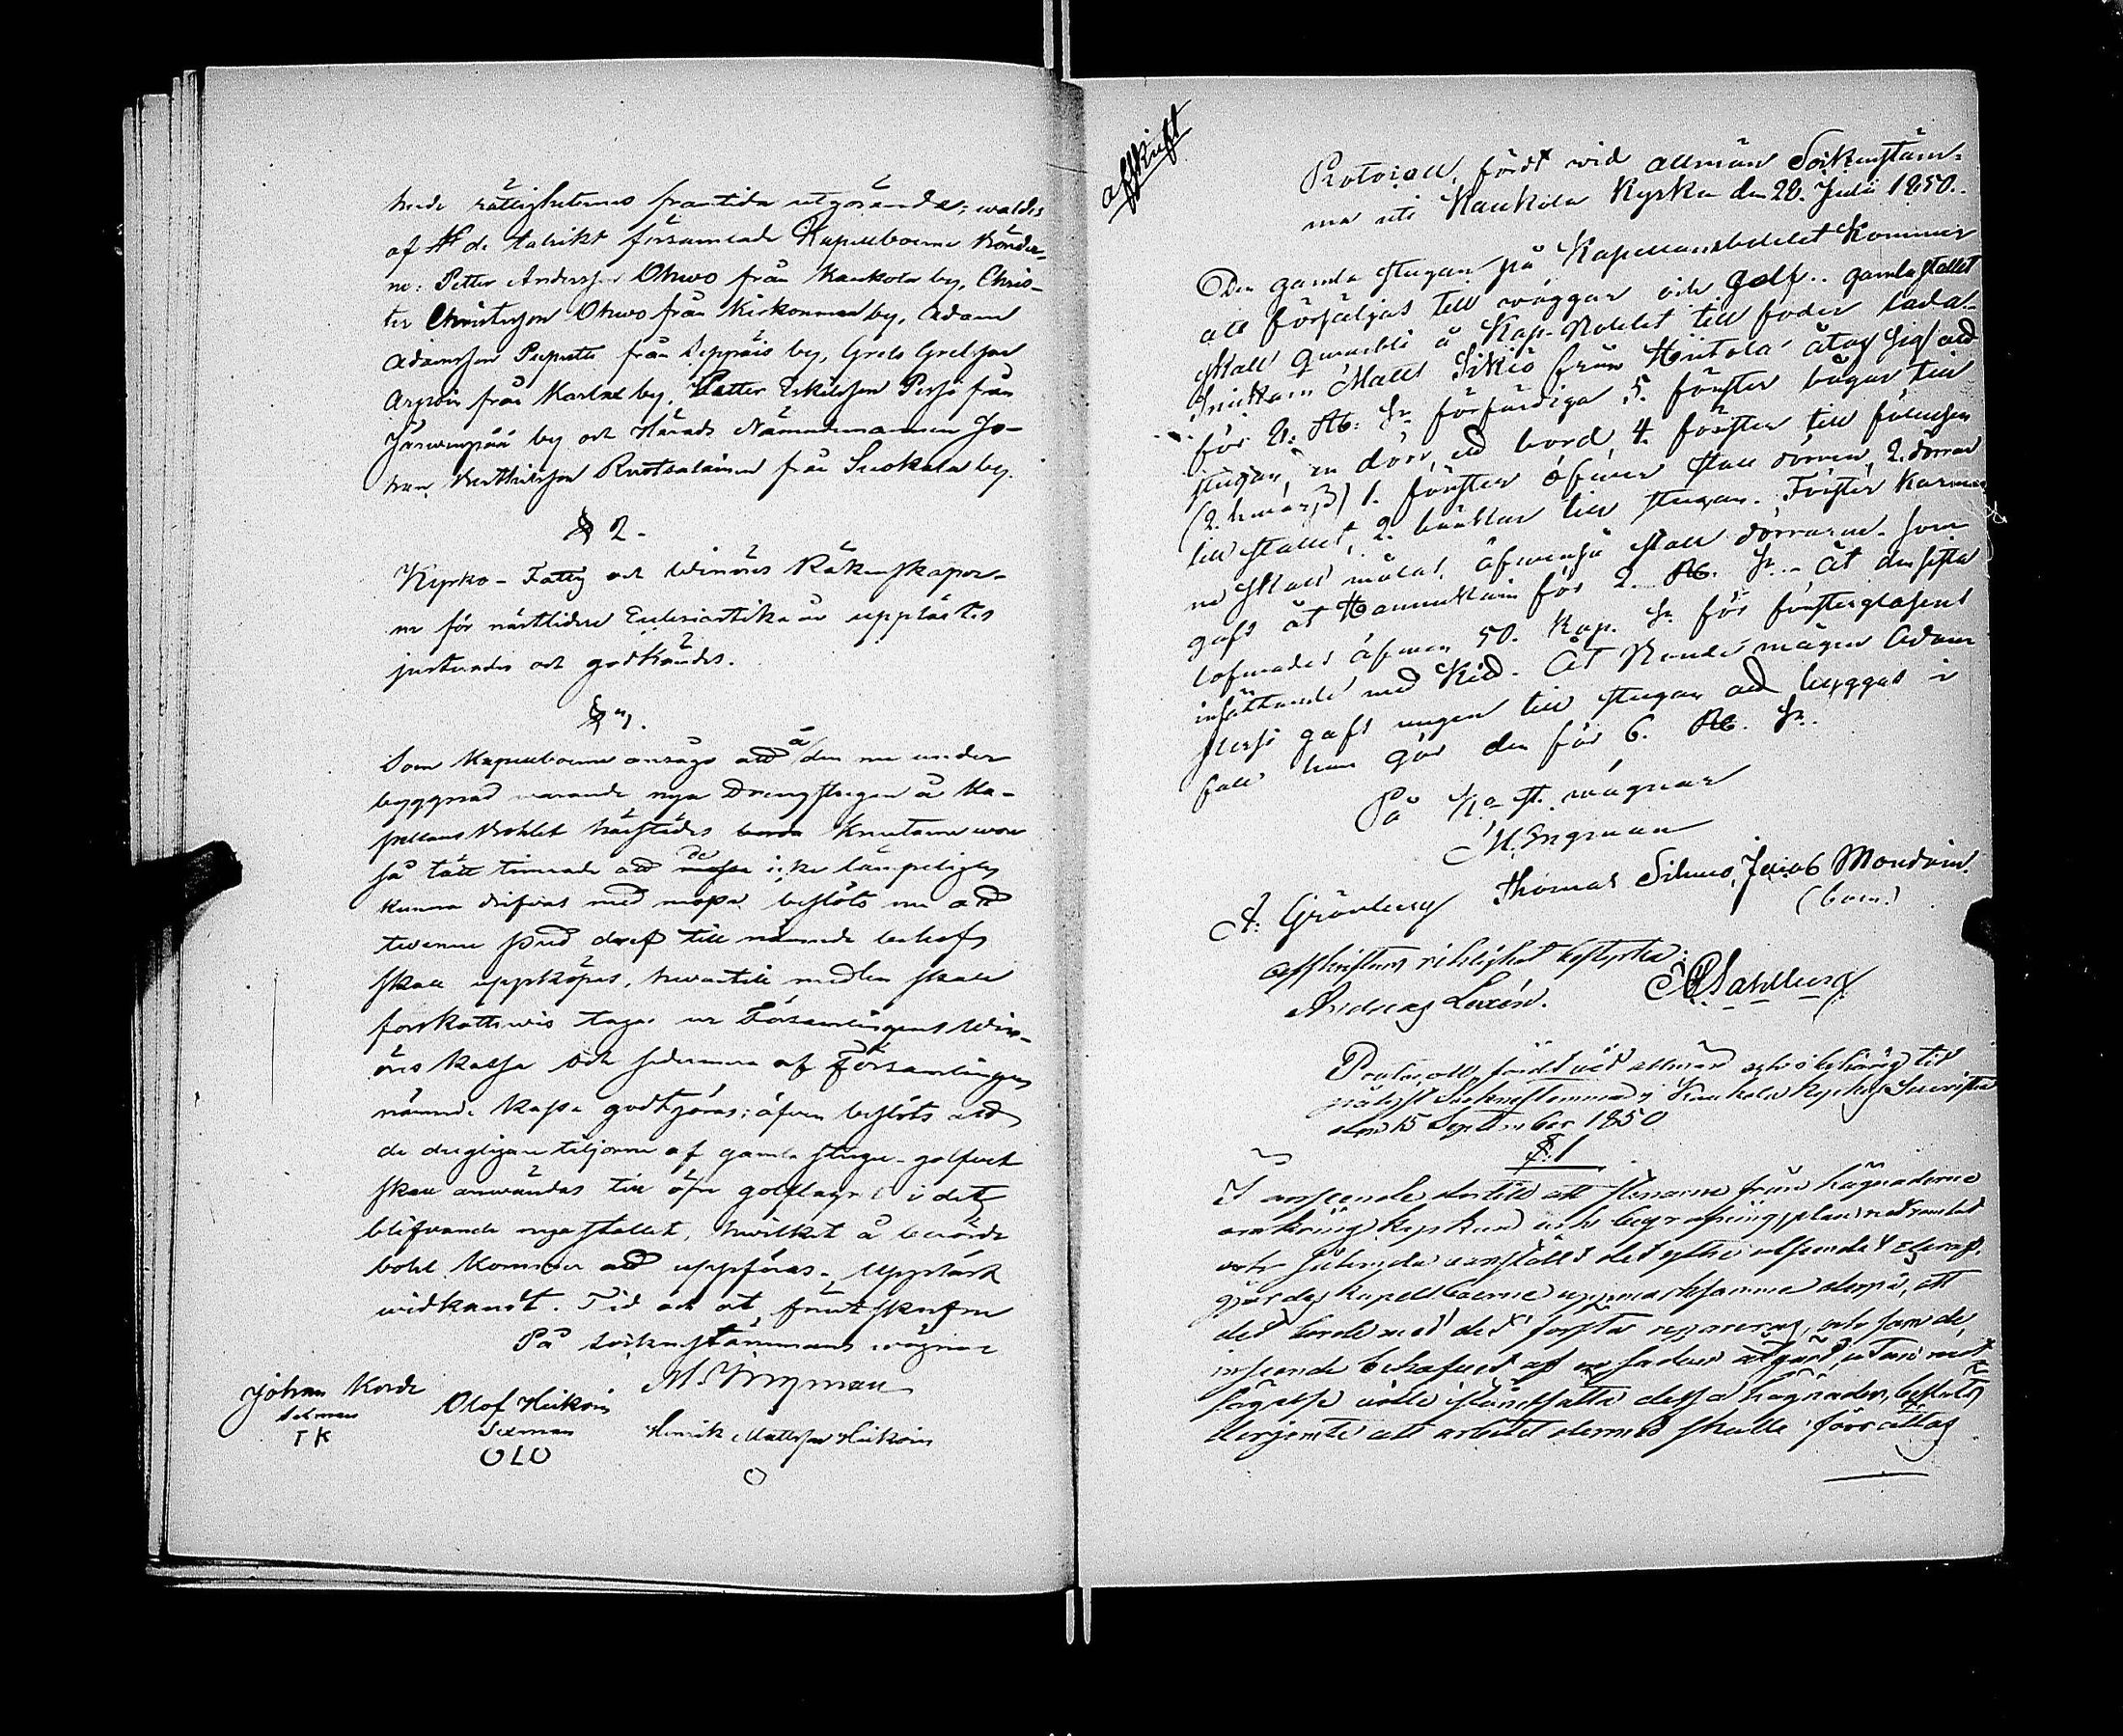 hende rättigheternas framtida utgörande; waldes
af de talrikt församlade Kapellboerne Bönder-
ne: Petter Andersson Ohwo från Kaukola by, Chris-
ter Christersson Ohwo från Kirkonmen by, Adam
Adamsson Puputti från Seppäis by, Grels Grelsson
från Karhu by, Petter Eskilsson Persi från
Järwenpää by och Härads Nämndemannen Jo-
han Ruotsalainen från Suokala by.
§ 2.
Kyrko- Fattig och Winörs Räkenskaper-
ne för nästlidne Ecclesiastikår upplästes
justerades och godkändes.
§ 3.
Som Kapellboerne ansågo att å den nu under
byggnad warande nya Drengstugan å Ka-
pellans Bohlet härstädes Knutarne wore
så tätt timrade att de icke lämpeligen
kunna drifvas med mossa, beslöts nu att
twenne pud dref till nämnde behof
skall uppköpas, hwartill medlen skall
förskottswis tagas ur Församlingens Win-
örs kassa och sedermera af Församlingen
nämnde kassa godtgöras; äfven beslöts att
de dugligare tiljorne af gamla stugu-golfvet
skall användas till öfre golflagret i det
blifvande nya stallet, hwilket å berörde
bohl kommer att uppföras. Uppläst
widkändt. Tid och ort förutskrifne
På sockenstämmans wägnar
M. Ingman
Johan Korde Olof Heikoin
Sexman Sexman Henrik Mattsson Heikoin
T K OLO
O
Afskrift
Protocoll, fördt wid allmän Sockenstäm-
ma uti Kaukola Kyrka den 28. Julii 1850.
Den gamla stugan på Kapellansbolet kommer
att försäljas till wäggar och golf.. gamla stallet
skall qwarbli å Kap-Bolet till foder lada-
Snickarn Matts Sikiö från Hiitola åtog sig att
för 21. Rb. Sr. förfärdiga 5. fönster bågar till
stugan, en dörr, ett bord 4. fönster till
1. fönster öfwer stall dörren, 2. dörrar
till stallet, 2. bänkar till stugan. Fönster karmar-
ne skall målas, äfwenså stall dörrarne- som
gafs åt Hannukain för 2. Rb. Sr.- Åt den sista
lofwades äfwen 50. Kop. Sr. för fönsterglasens
insättande med Kitt- Åt Bonde mågen Adam
Persi gafs ungen till stugan att byggas i
fall han gör den för 6. Rb. Sr.
På wägnar
M. Ingman
A: Grönberg Thomas Silwo, Jacob Mondoin.
Afskriftens riktighet bestyrka:
Andreas Lexén. Sahlberg
Protocoll, fördt vid allmän och behörig tid
pålyst Sockenstemma i Kaukola Kyrkas Sacristia
den 15 September 1850
§: 1
I anseende dertill att stenarne från hägnaderne
omkring Kyrkan och begrafningsplan nedramlat
och sålunda det yttre utseendet
gjordes kapellboerne uppmärksamme derpå, att
det borde med det första repareras, och som de
inseende behofvet af en sådan åtgärd, utan mot-
sägelse ville iståndsätta dessa hägnader, beslöts
derjemte att arbetet dermed skulle företagas